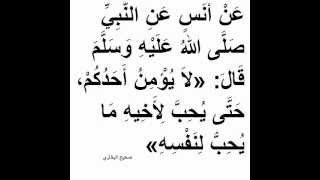 عَنْ أَنَسٍ عَنِ النَّبِيِّ
صَلَّى اللهُ عَلَيْهِ وَسَلَّمَ
قَالَ: «لاَ يُؤْمِنُ أَحَدُكُمْ،
حَتَّى يُحِبَّ لِأَخِيهِ مَا
يُحِبُّ لِنَفْسِهِ»
صحيح البخاري